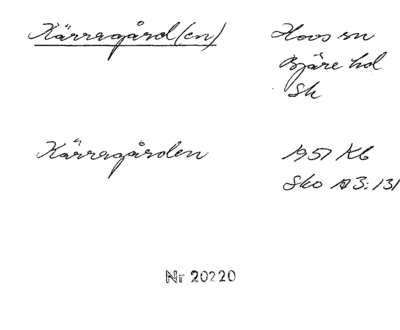 Kärragård(en) Hovs sn
Bjäre hd
Sk
Kärragården 1957 Kb
Sko A3:131
Nr 20220